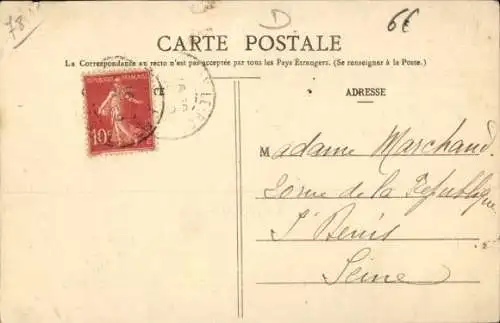 78
D
6€
CARTE POSTALE
La Correspondance au recto n'est pas acceptée par tous les Pays Étrangers. (Se renseigner à la Poste.)
ADRESSE
RÉPUBLIQUE FRANÇAISE
10c
Madame Marchand
de la République
St Denis
Seine